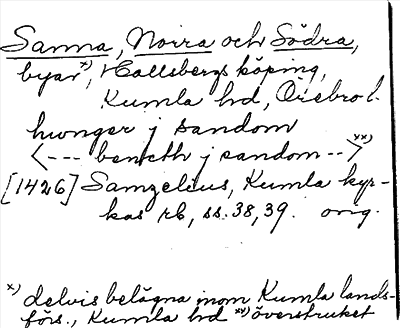 Sanna, Norra och Södra,
byar x), Hallsbergs köping,
Kumla hd, Örebro l.
hwnger j sandom
<--- bencth j sandom --> xx)
[1426] Samzelius, Kumla kyr-
kas rb, ss. 38, 39. orig.
x) delvis belägna inom Kumla lands-
förs., Kumla hd xx) överstruket